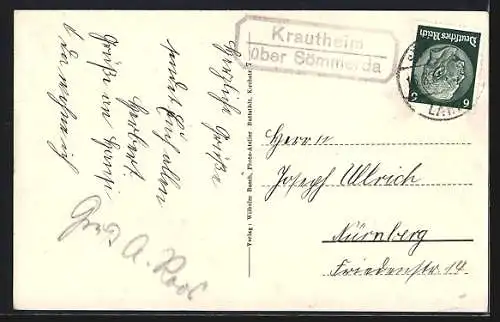 Krautheim
über Sömmerda
Deutsches Reich
6 6
Herzliche Grüße
sendet Euch allen
Herbert
Grüße an Hansi
Gruß A. Roos
Verlag: Wilhelm Busch, Photo-Atelier Buttstädt, Kirchstr. 7
Herrn
Joseph Ullrich
Nürnberg
Friedenstr. 14.